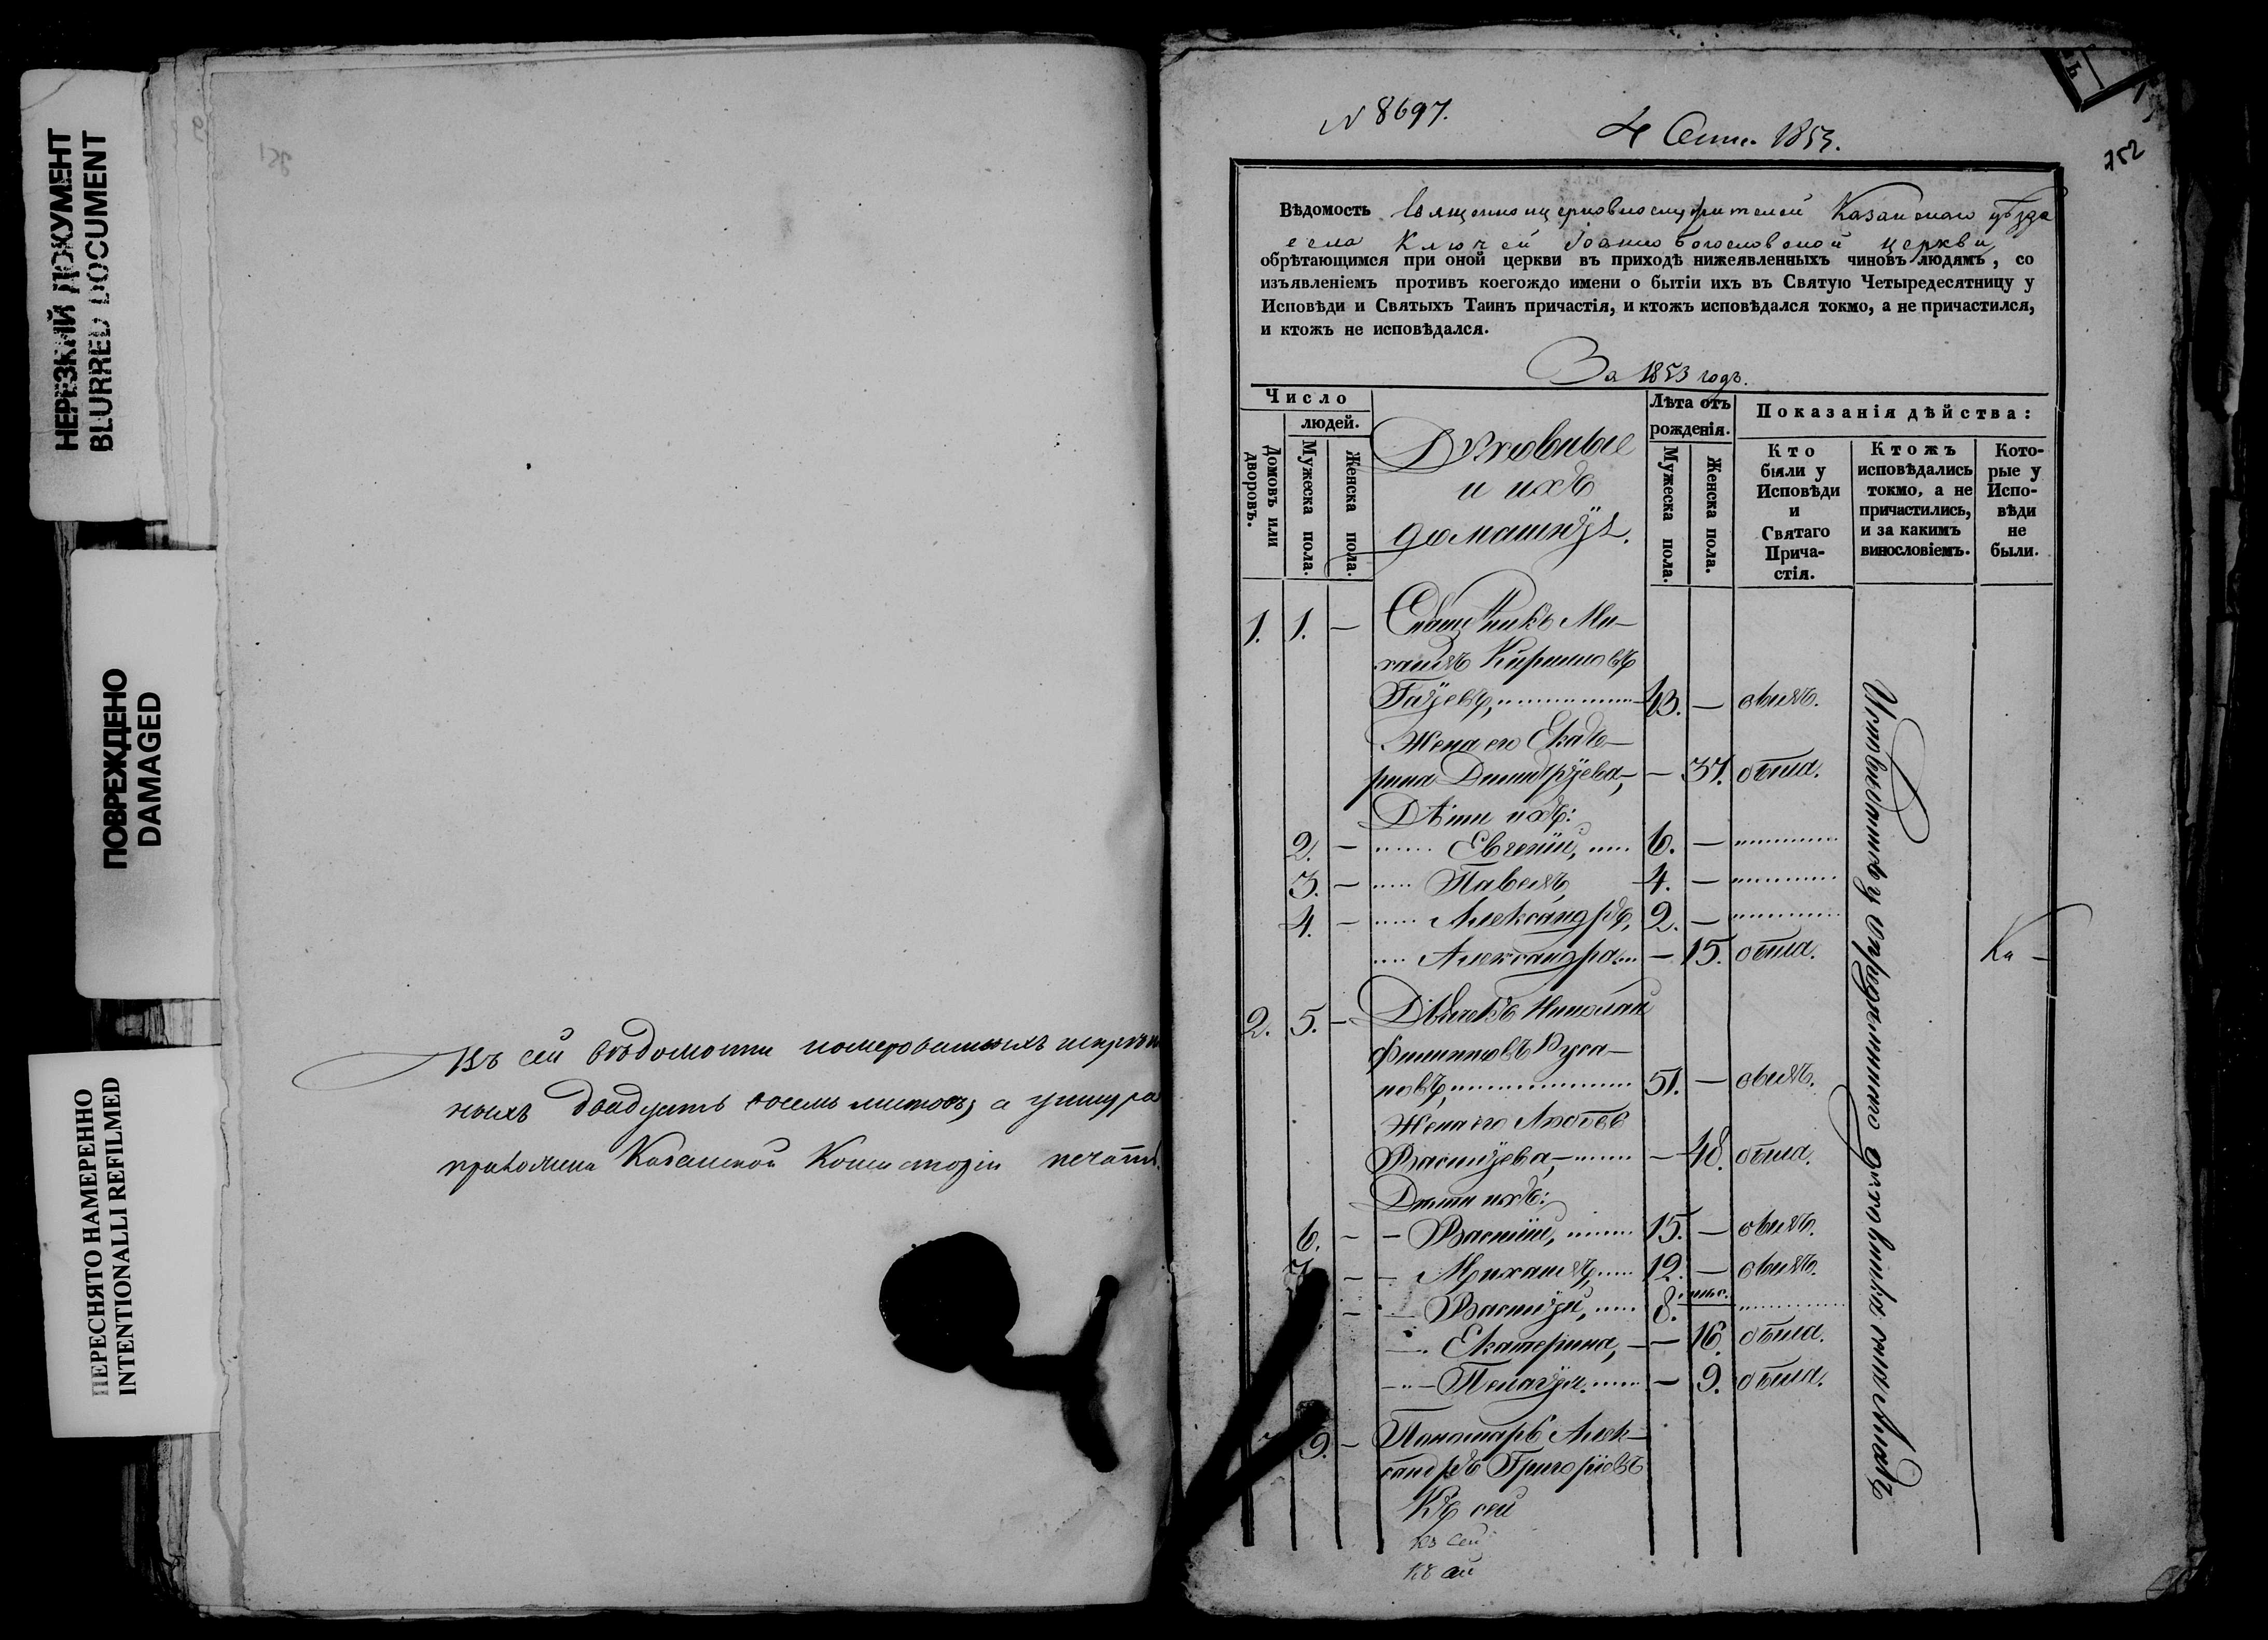 НЕРЕЗКИЙ ДОКУМЕНТ
BLURRED DOCUMENT
ПОВРЕЖДЕНО
DAMAGED
ПЕРЕСНЯТО НАМЕРЕННО
INTENTIONALLI REFILMED
Въ сей вѣдомости номерованныхъ
ныхъ двадцать восемь листовъ, а у
приложена Казанской Консисторіи печать.
№ 8697.
4 Сент. 1853.
752
Вѣдомость Священноцерковнослужителей Казанскаго уѣзда
села Ключей Іоанно Богословской церкви
обрѣтающимся при оной церкви въ приходѣ нижеявленныхъ чиновъ людямъ, со
изъявленіемъ противъ коегождо имени о бытіи ихъ въ Святую Четыредесятницу у
Исповѣди и Святыхъ Таинъ причастія, и ктожъ исповѣдался токмо, а не причастился,
и ктожъ не исповѣдался.
За 1853 годъ.
Число
людей.
Домовъ или дворовъ.
Мужеска пола.
Женска пола.
Духовные
и ихъ
домашніе.
Лѣта отъ
рожденія.
Мужеска пола.
Женска пола.
Показанія дѣйства:
Кто
были у
Исповѣди
и
Святаго
Прича-
стія.
Ктожъ
исповѣдались
токмо, а не
причастились,
и за какимъ
винословіемъ.
Кото-
рые у
Испо-
вѣди
не
были.
1. 1. — Священникъ Ми-
хаилъ Кириловъ
43. — былъ.
Жена его Екате-
рина Димитріева, — 37. была.
Дѣти ихъ:
2. — Евгеній, 6. —
3. — Павелъ, 4. —
4. — Александръ, 2. —
Александра — 15. была.
Ка —
2. 5. — Дьячекъ Николай
Филипповъ Руса-
новъ, 51. — былъ.
Жена его Любовь
Васильева, — 48. была.
Дѣти ихъ:
6. — Василій, 15. — былъ.
7. — Михаилъ, 12. — былъ.
— Василій, 8. мѣс.
Екатерина, — 16. была.
Пелагія — 9. была.
9. — Пономарь Алек-
сандръ Григорьевъ
Къ сей
къ сей
къ сей